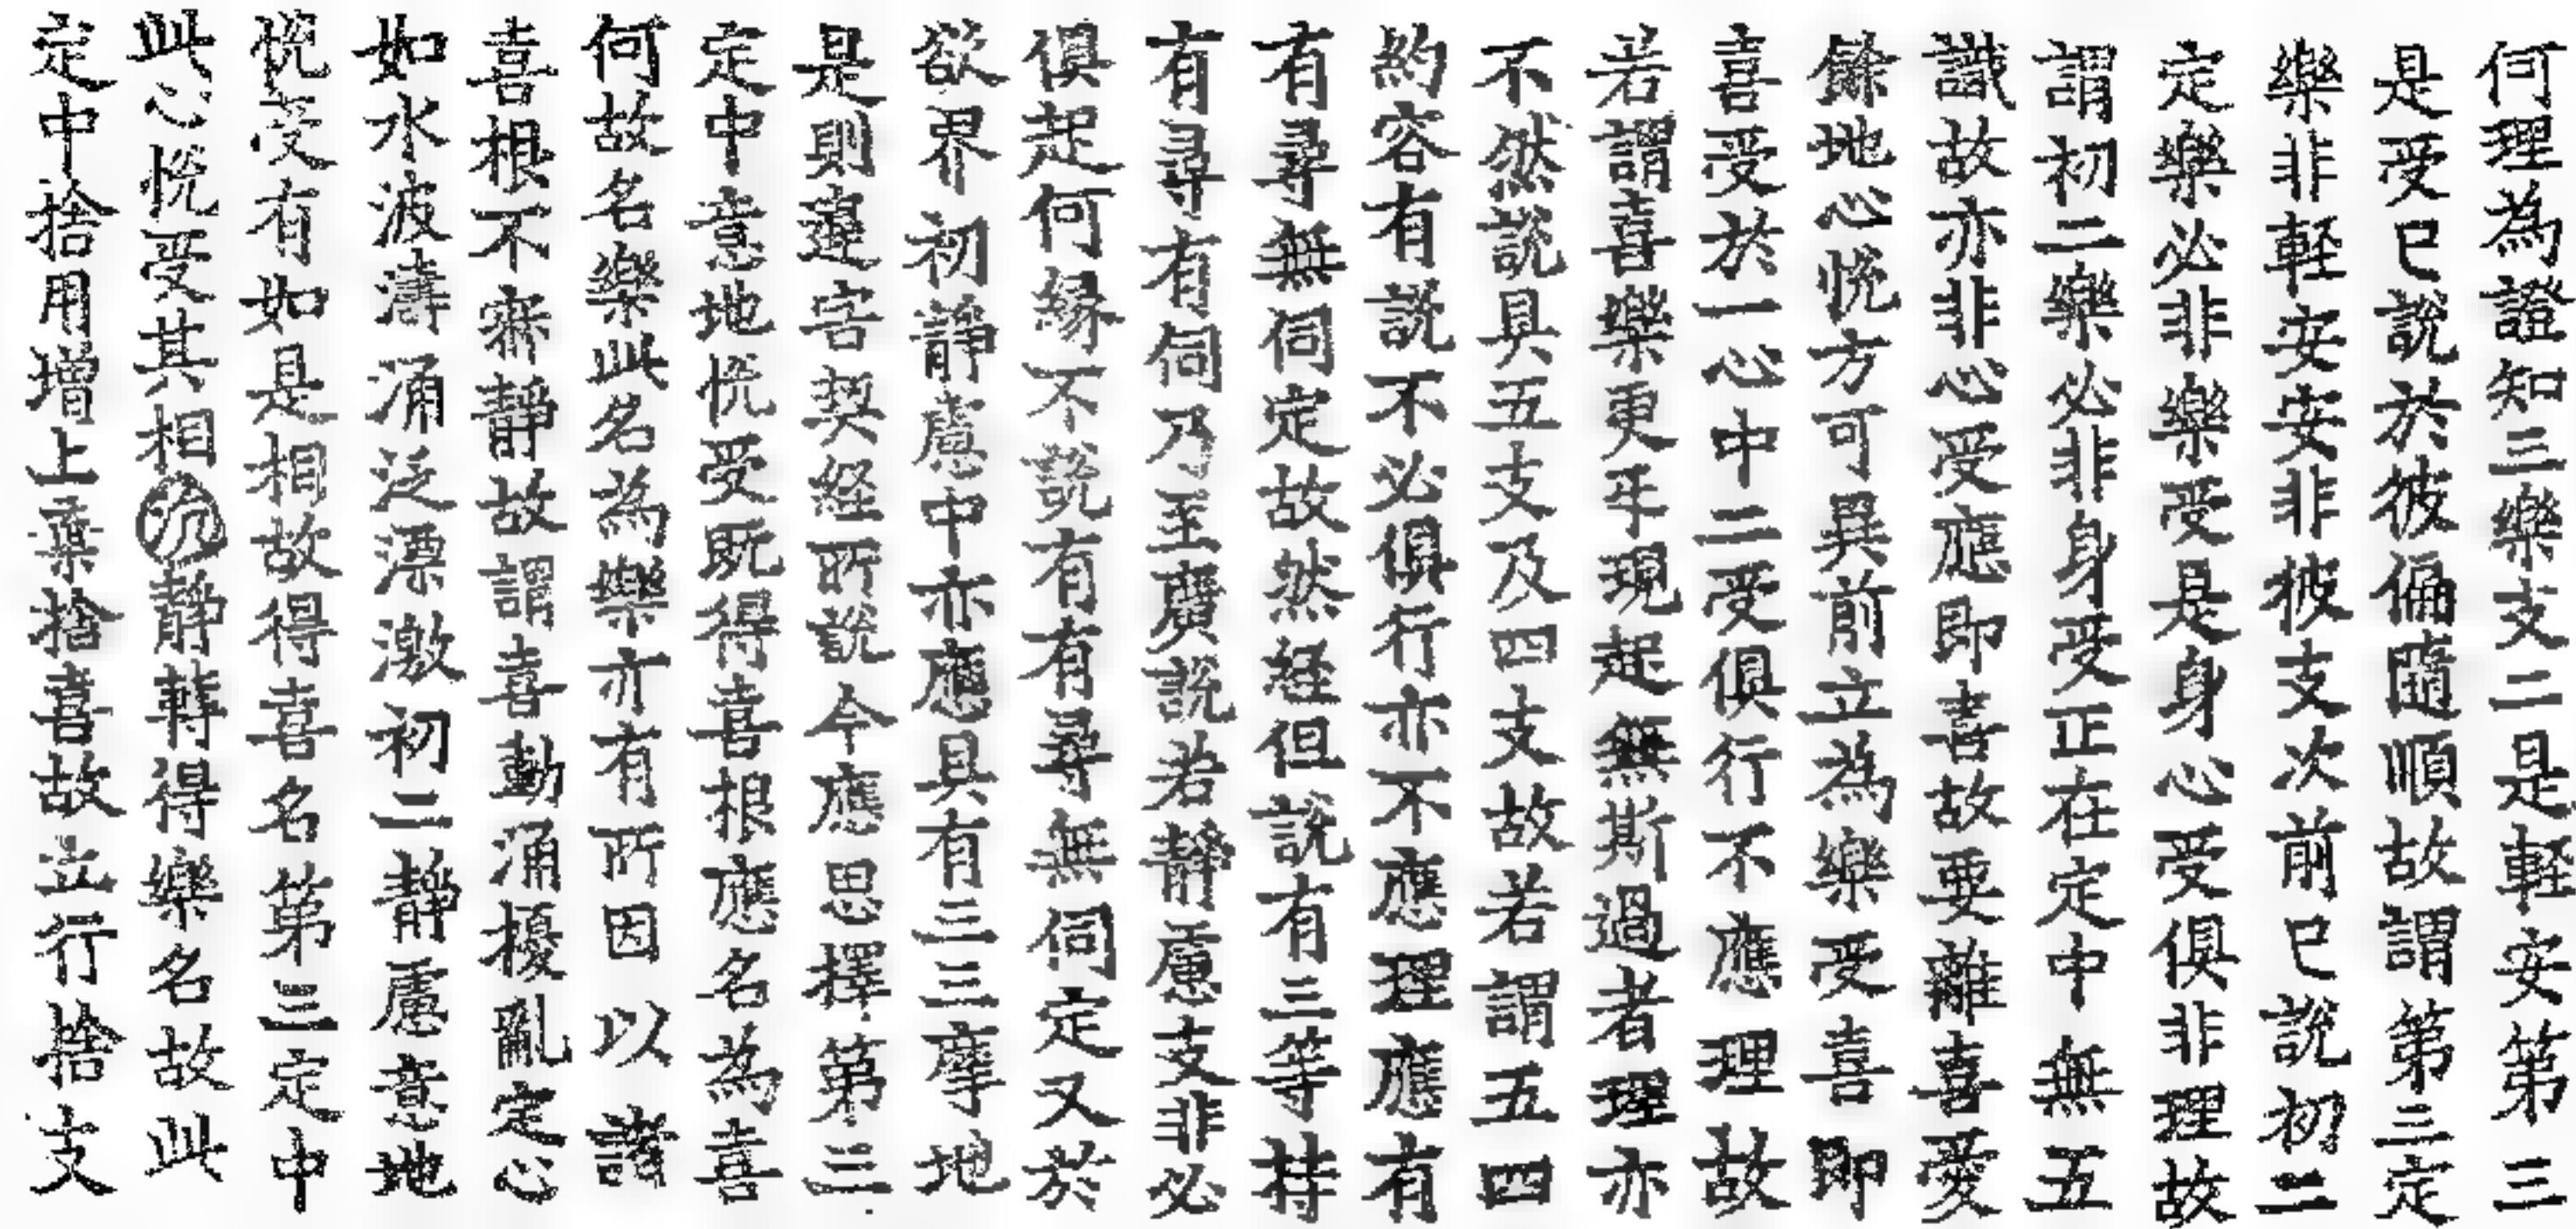 何理為證知三樂支二是輕安第三
是受已說於彼偏隨順故謂第三定
樂非輕安安非彼支次前已說初二
定樂必非樂受是身心受俱非理故
謂初二樂必非身受正在定中無五
識故亦非心受應即喜故要離喜愛
餘地心悅方可異前立為樂受喜即
喜受於一心中二受俱行不應理故
若謂喜樂更互現起無斯過者理亦
不然說具五支及四支故若謂五四
約容有說不必俱行亦不應理應有
有尋無伺定故然経但說有三等持
有尋有伺乃至廣說若靜慮支非必
俱起何緣不說有有尋無伺定又於
欲界初靜慮中亦應具有三三摩地
是則違害契経所說今應思擇第三
定中意地悅受既得喜根應名為喜
何故名樂此名為樂亦有所因以諸
喜根不寂靜故謂喜動涌擾亂定心
如水波濤涌泛漂激初二靜慮意地
悅受有如是相故得喜名第三定中
此心悅受其相沉靜轉得樂名故此
定中捨用增上棄捨喜故立行捨支